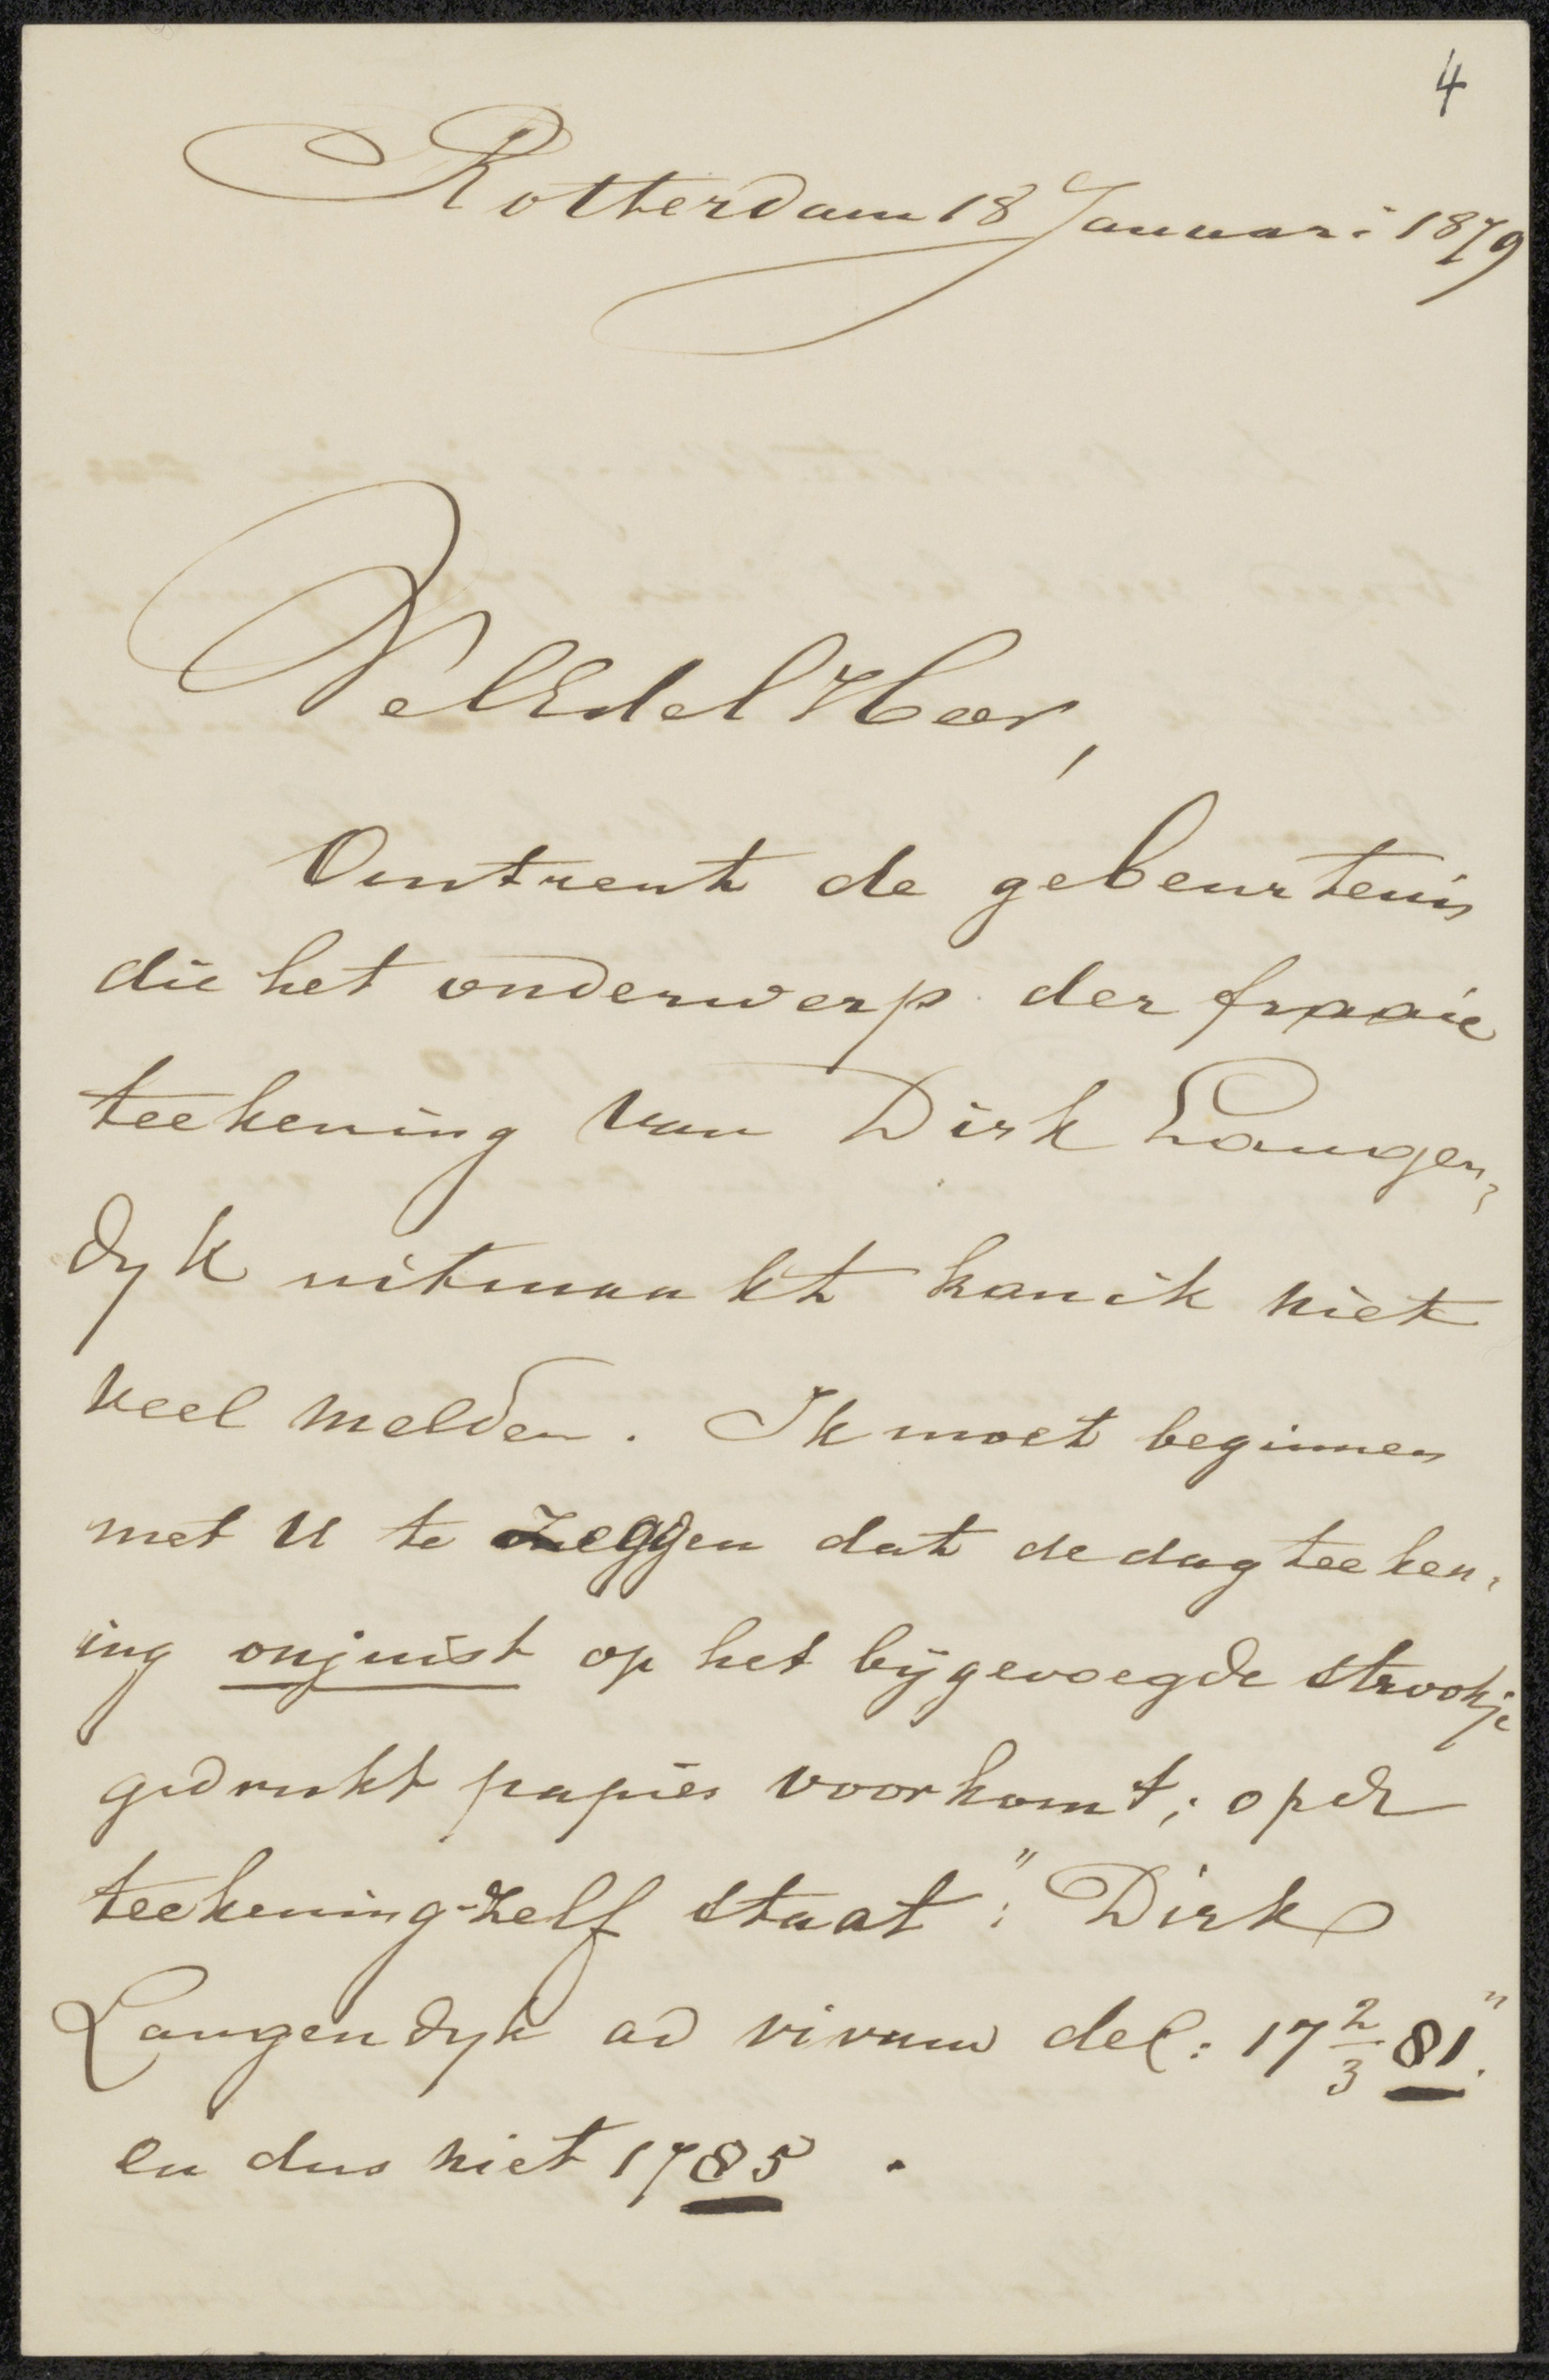 4
Rotterdam 18 Januari 1879
WelEdel Heer,
Omtrent de gebeurtenis
die het onderwerp der fraaie
teekening van Dirk Langen,
dyk uitmaakt kan ik niet
veel melden. Ik moet beginnen
met U te zeggen dat de dagteeken,
ing onjuist op het bijgevoegde strookje
gedrukt papier voorkomt; op de
teekening zelf staat: "Dirk
Langendyk ad vivum del: 17 2/3 81."
en dus niet 1785.